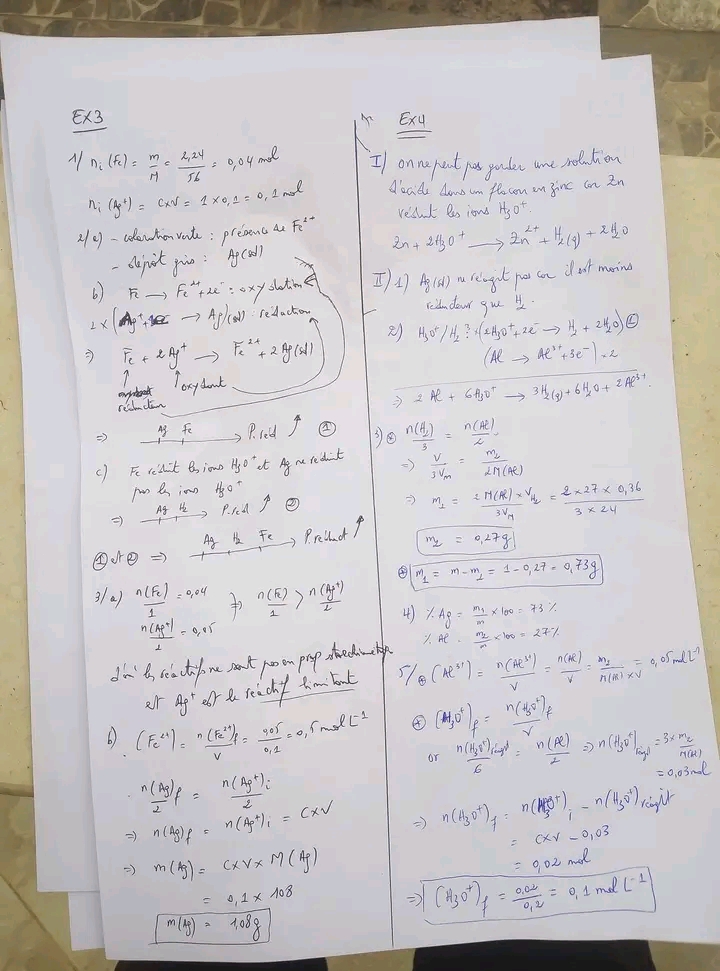 EX3
1/ ni (Fe) = m/M = 2,24/56 = 0,04 mol
ni (Ag⁺) = C×V = 1 × 0,1 = 0,1 mol
2/ a) - coloration verte : présence de Fe²⁺
- dépôt gris : Ag(sd)
b) Fe → Fe²⁺ + 2e⁻ : oxydation
2 × (Ag⁺ + 1e⁻ → Ag)(sd) : réduction
⇒ Fe + 2Ag⁺ → Fe²⁺ + 2Ag(sd)
↑ ↑ oxydant
réducteur
⇒ Ag Fe → P. réd ↑ ①
c) Fe réduit les ions H₃O⁺ et Ag ne réduit
pas les ions H₃O⁺
⇒ Ag H₂ → P. red ↑ ②
① et ② ⇒ Ag H₂ Fe → P. réduct ↑
3/ a) n(Fe)/1 = 0,04
n(Ag⁺)/2 = 0,05
⇒ n(Fe)/1 > n(Ag⁺)/2
d'où les réactifs ne sont pas en prop stoechiométrique
et Ag⁺ est le réactif limitant
b) [Fe²⁺] = n(Fe²⁺)f/V = 0,05/0,1 = 0,5 mol L⁻¹
- n(Ag)f/2 = n(Ag⁺)i/2
⇒ n(Ag)f = n(Ag⁺)i = C×V
⇒ m(Ag) = C×V× M(Ag)
= 0,1 × 108
m(Ag) = 1,08g
EX4
I) on ne peut pas garder une solution
d'acide dans un flacon en zinc car Zn
réduit les ions H₃O⁺.
Zn + 2H₃O⁺ → Zn²⁺ + H₂(g) + 2H₂O
II) 1) Ag(sd) ne réagit pas car il est moins
réducteur que H₂.
2) H₃O⁺/H₂ : (2H₃O⁺ + 2e⁻ → H₂ + 2H₂O)
(Al → Al³⁺ + 3e⁻) × 2
⇒ 2 Al + 6H₃O⁺ → 3H₂(g) + 6H₂O + 2Al³⁺.
3) n(H₂)/3 = n(Al)/2
⇒ V/3Vm = m₂/2M(Al)
⇒ m₂ = 2M(Al) × VH₂/3VM = 2 × 27 × 0,36/3 × 24
m₂ = 0,27g
m₁ = m - m₂ = 1 - 0,27 = 0,73g
4) % Ag = m₁/m × 100 = 73 %
% Al = m₂/m × 100 = 27 %
5/ [Al³⁺] = n(Al³⁺)/V = n(Al)/V = m₂/M(Al) × V = 0,05 mol L⁻¹
[H₃O⁺]f = n(H₃O⁺)f/V
or n(H₃O⁺)réagit/6 = n(Al)/2 ⇒ n(H₃O⁺)réagit = 3 × m₂/M(Al)
= 0,03 mol
⇒ n(H₃O⁺)f = n(H₃O⁺)i - n(H₃O⁺)réagit
= C×V - 0,03
= 0,02 mol
⇒ [H₃O⁺]f = 0,02/0,2 = 0,1 mol L⁻¹